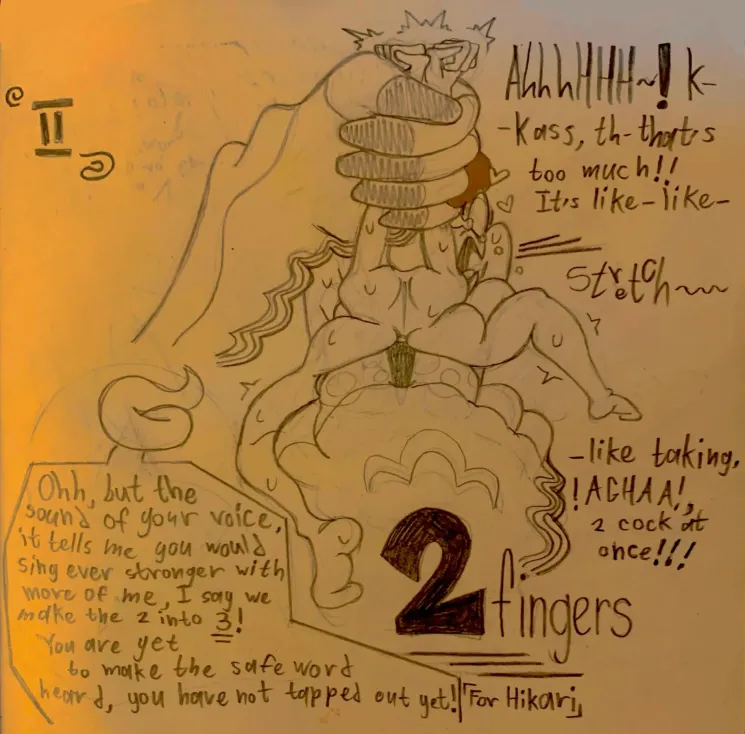 II
AhhhHHH~! k-
-Kass, th-that's
too much!!
It's like-like-
Stretch~~
-like taking,
!AGHAA!,
2 cock at
once!!!
Ohh, but the
sound of your voice,
it tells me you would
sing ever stronger with
more of me, I say we
make the 2 into 3!
You are yet
to make the safe word
heard, you have not tapped out yet!
2
fingers
「For Hikari」